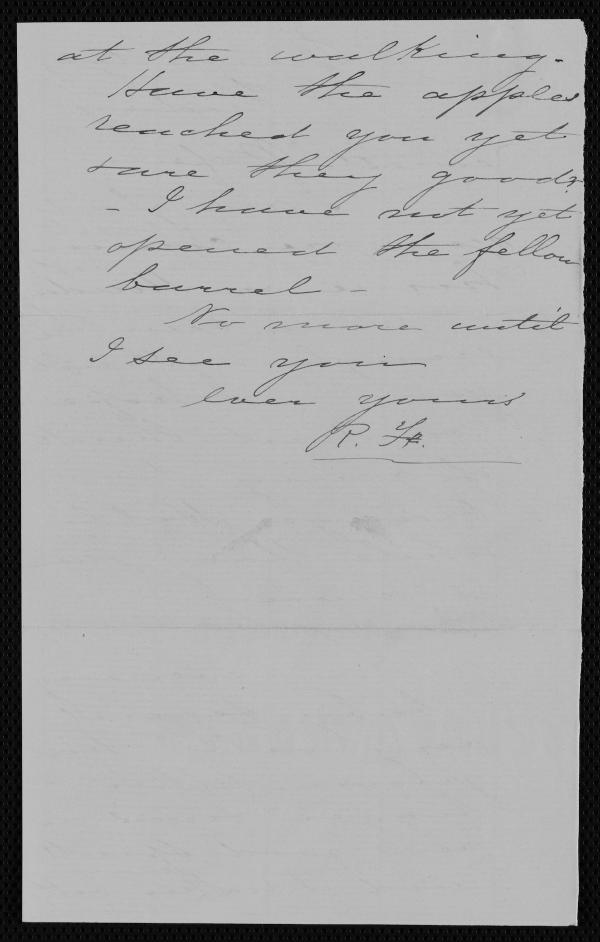 at the walking.
Have the apples
reached you yet
& are they good?
- I have not yet
opened the fellow
barrel -
No more until
I see you
ever yours
R.